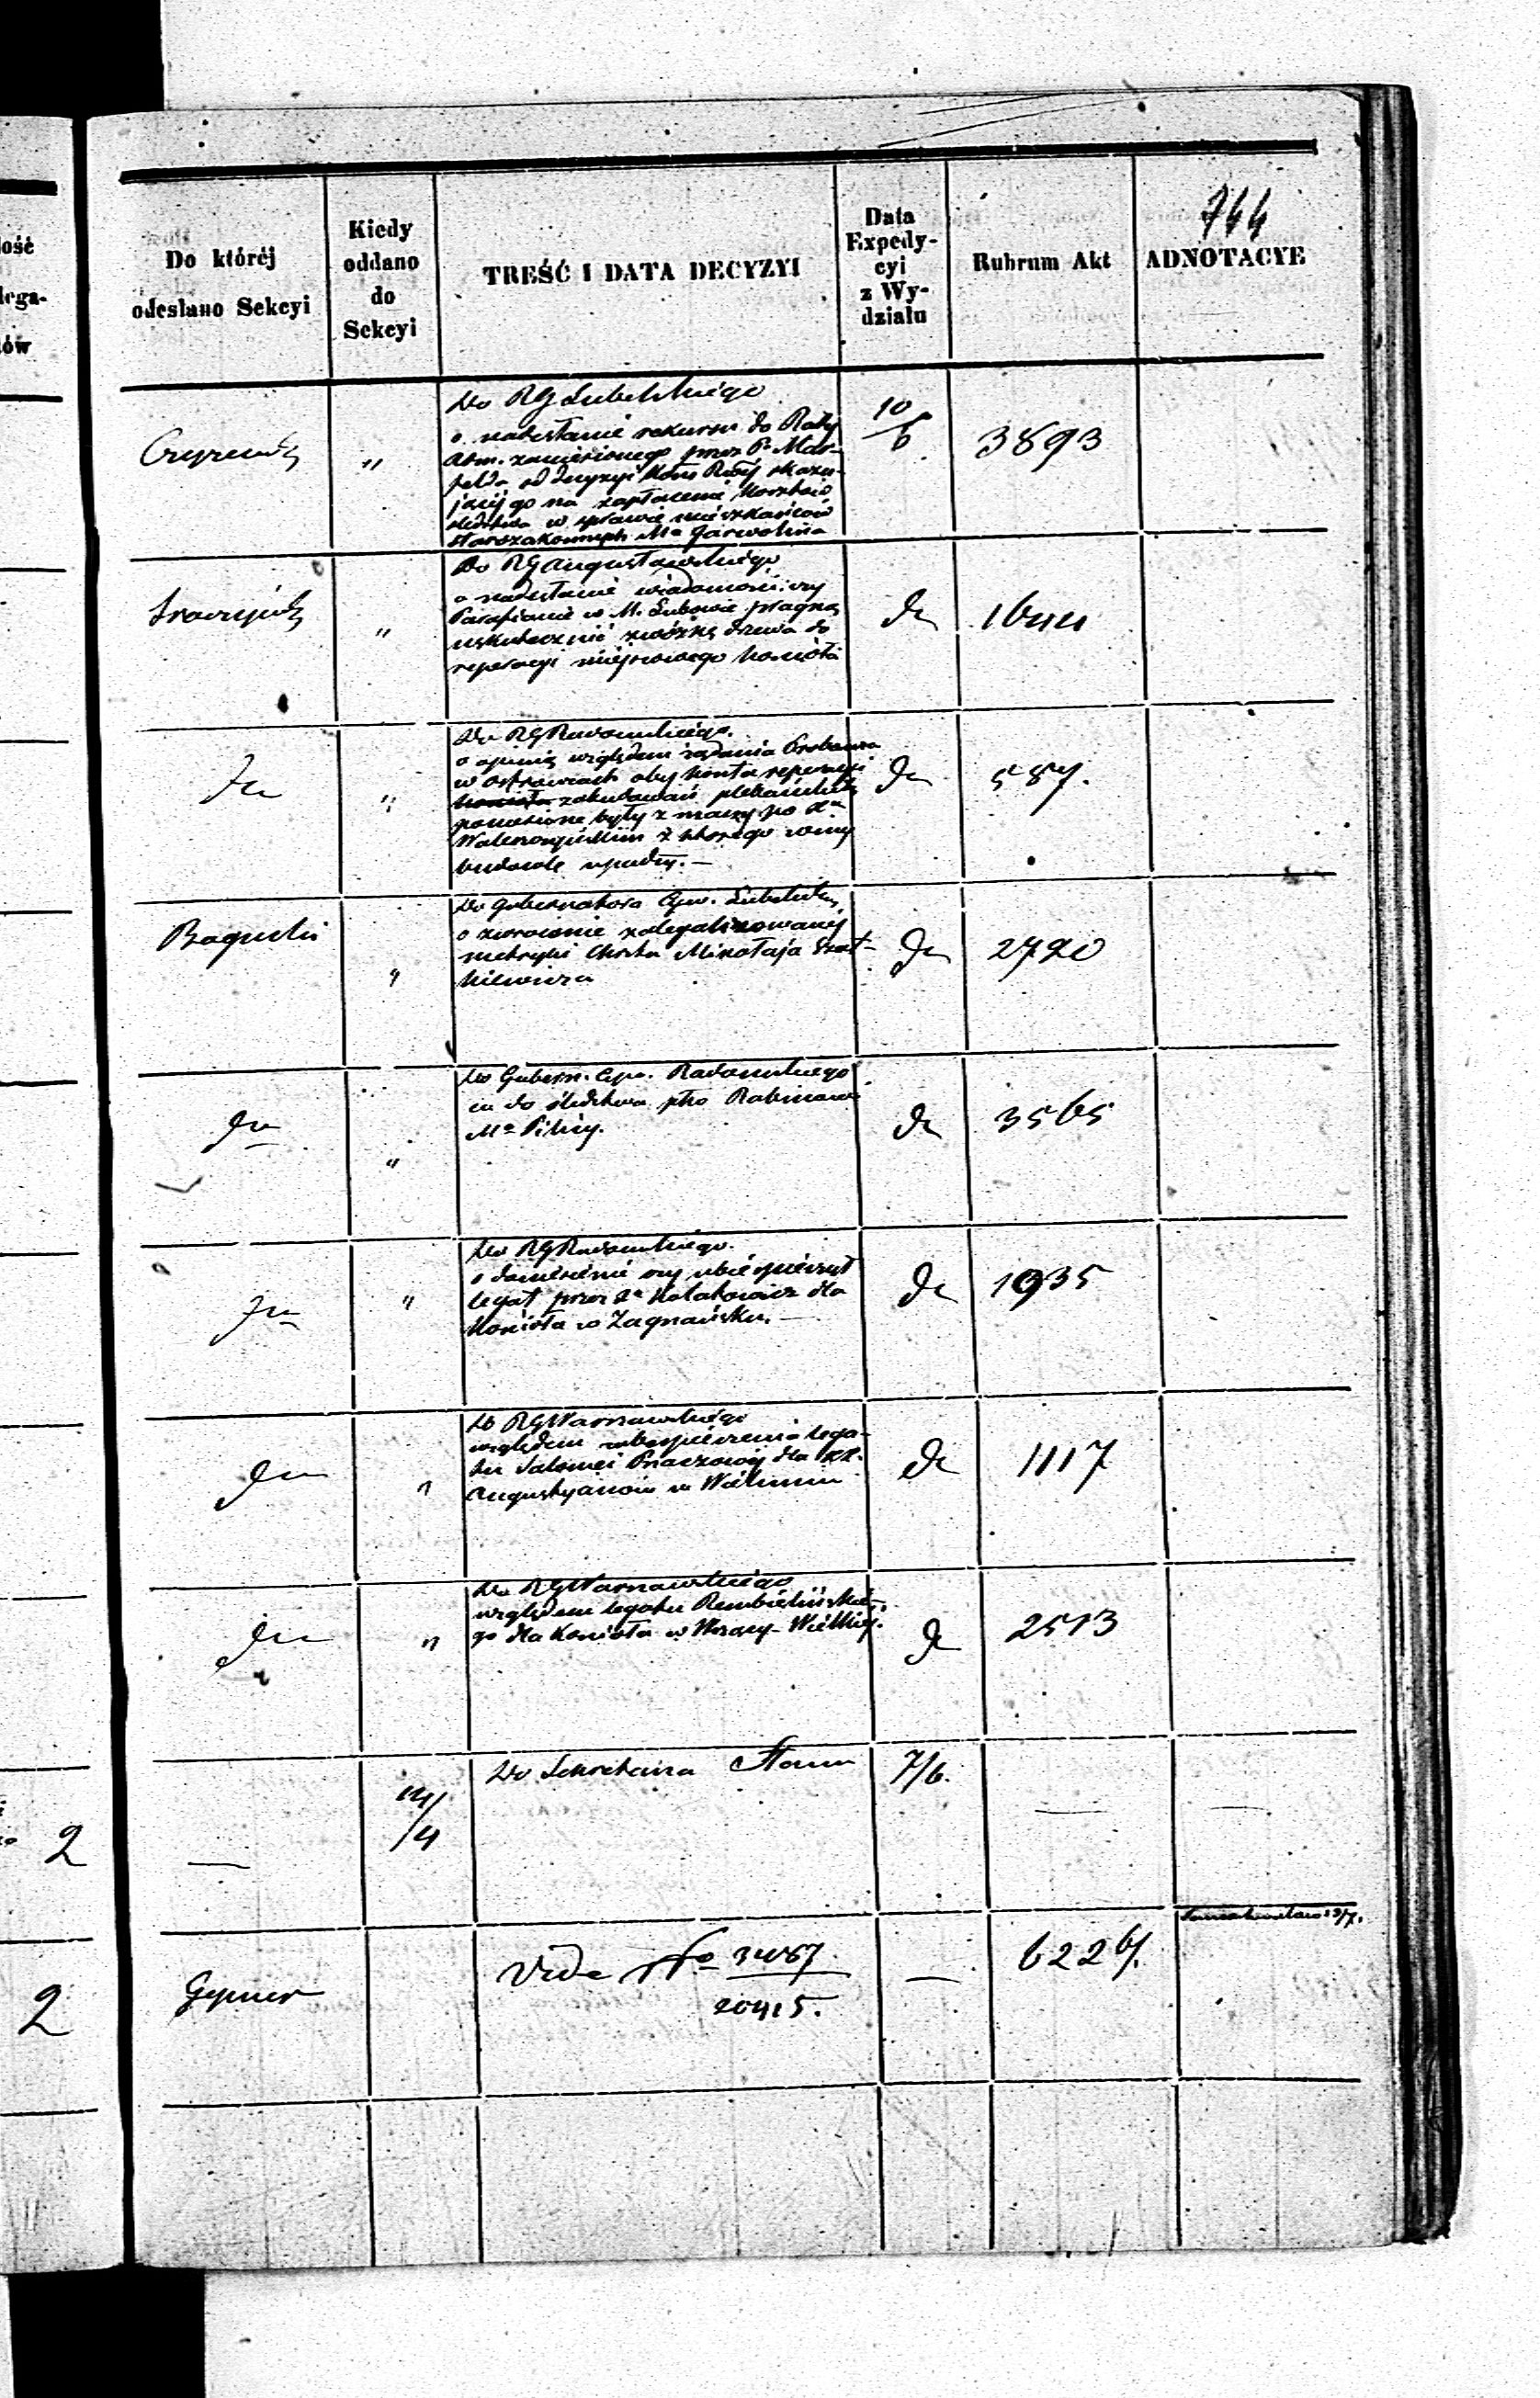 744
Do któréj
odesłano Sekcyi
Kiedy
oddano
do
Sekcyi
TREŚĆ I DATA DECYZYI
Data
Expedy-
cyi
z Wy-
działu
Rubrum Akt
ADNOTACYE
"
Do RG Lubelskiego
o nadesłanie rekursu do Rady
Adm. zaniesionego przez P. Mas-
felda od decyzyi Kom Rząj skazu-
jącéj go na zapłacenie kosztów
śledztwa w sprawie mieszkańców
starozakonnych Ma Garwolina
10/6
3893
"
Do RG Augustowskiego
o nadesłanie wiadomości czy
Parafianie w M. Lubowie pragną
uskutecznić zwózkę drzewa do
reperacyi miejscowego kościoła
do
1644
do
"
Do RG Radomskiego.
o opinię względem żądania Proboszcza
w Ostrowcach aby koszta reperacyi
kościoła zabudowań plebańskich
ponoszone były z massy po Xu
z którego winy
budowle upadły. —
do
587.
Bogucki
"
Do Gubernatora Cyw. Lubelskiego
o zwrócenie zalegalizowanéj
metryki Chrztu Mikołaja Szat-
kiewicza
do
2790
do
"
Do Gubern. Cyw. Radomskiego
co do śledztwa pko Rabinowi
Ma Pilicy.
do
3565
do
"
Do RG Radomskiego.
o doniesienie czy ubezpieczył
legat przez Xa Kołakowicz dla
Kościoła w Zagnańsku. —
do
1935
do
"
Do RG Warszawskiego
względem ubezpieczenia lega-
tu Salomei Ptaszkowéj dla XX.
Augustyanów w Wieluniu
do
1117
do
"
Do RG Warszawskiego
względem legatu Rembielińskie-
go dla Kościoła w Wielkiéj.
do
2513
2
—
14/4
Do Sekretarza Stanu
7/6.
—
—
2
Vide No 3487
20415.
—
6226/.